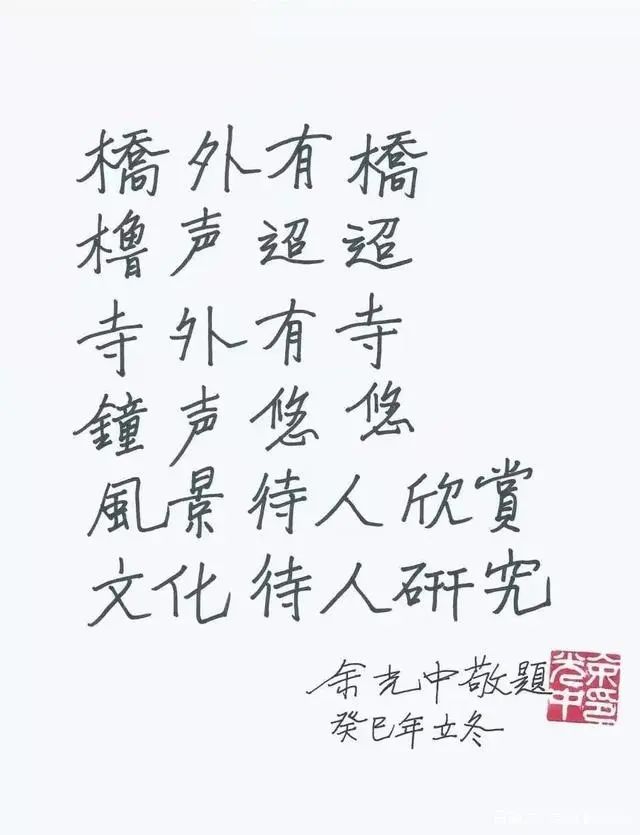 橋外有橋
櫓声迢迢
寺外有寺
鐘声悠悠
風景待人欣賞
文化待人研究
余光中敬題
癸巳年立冬
余光中印